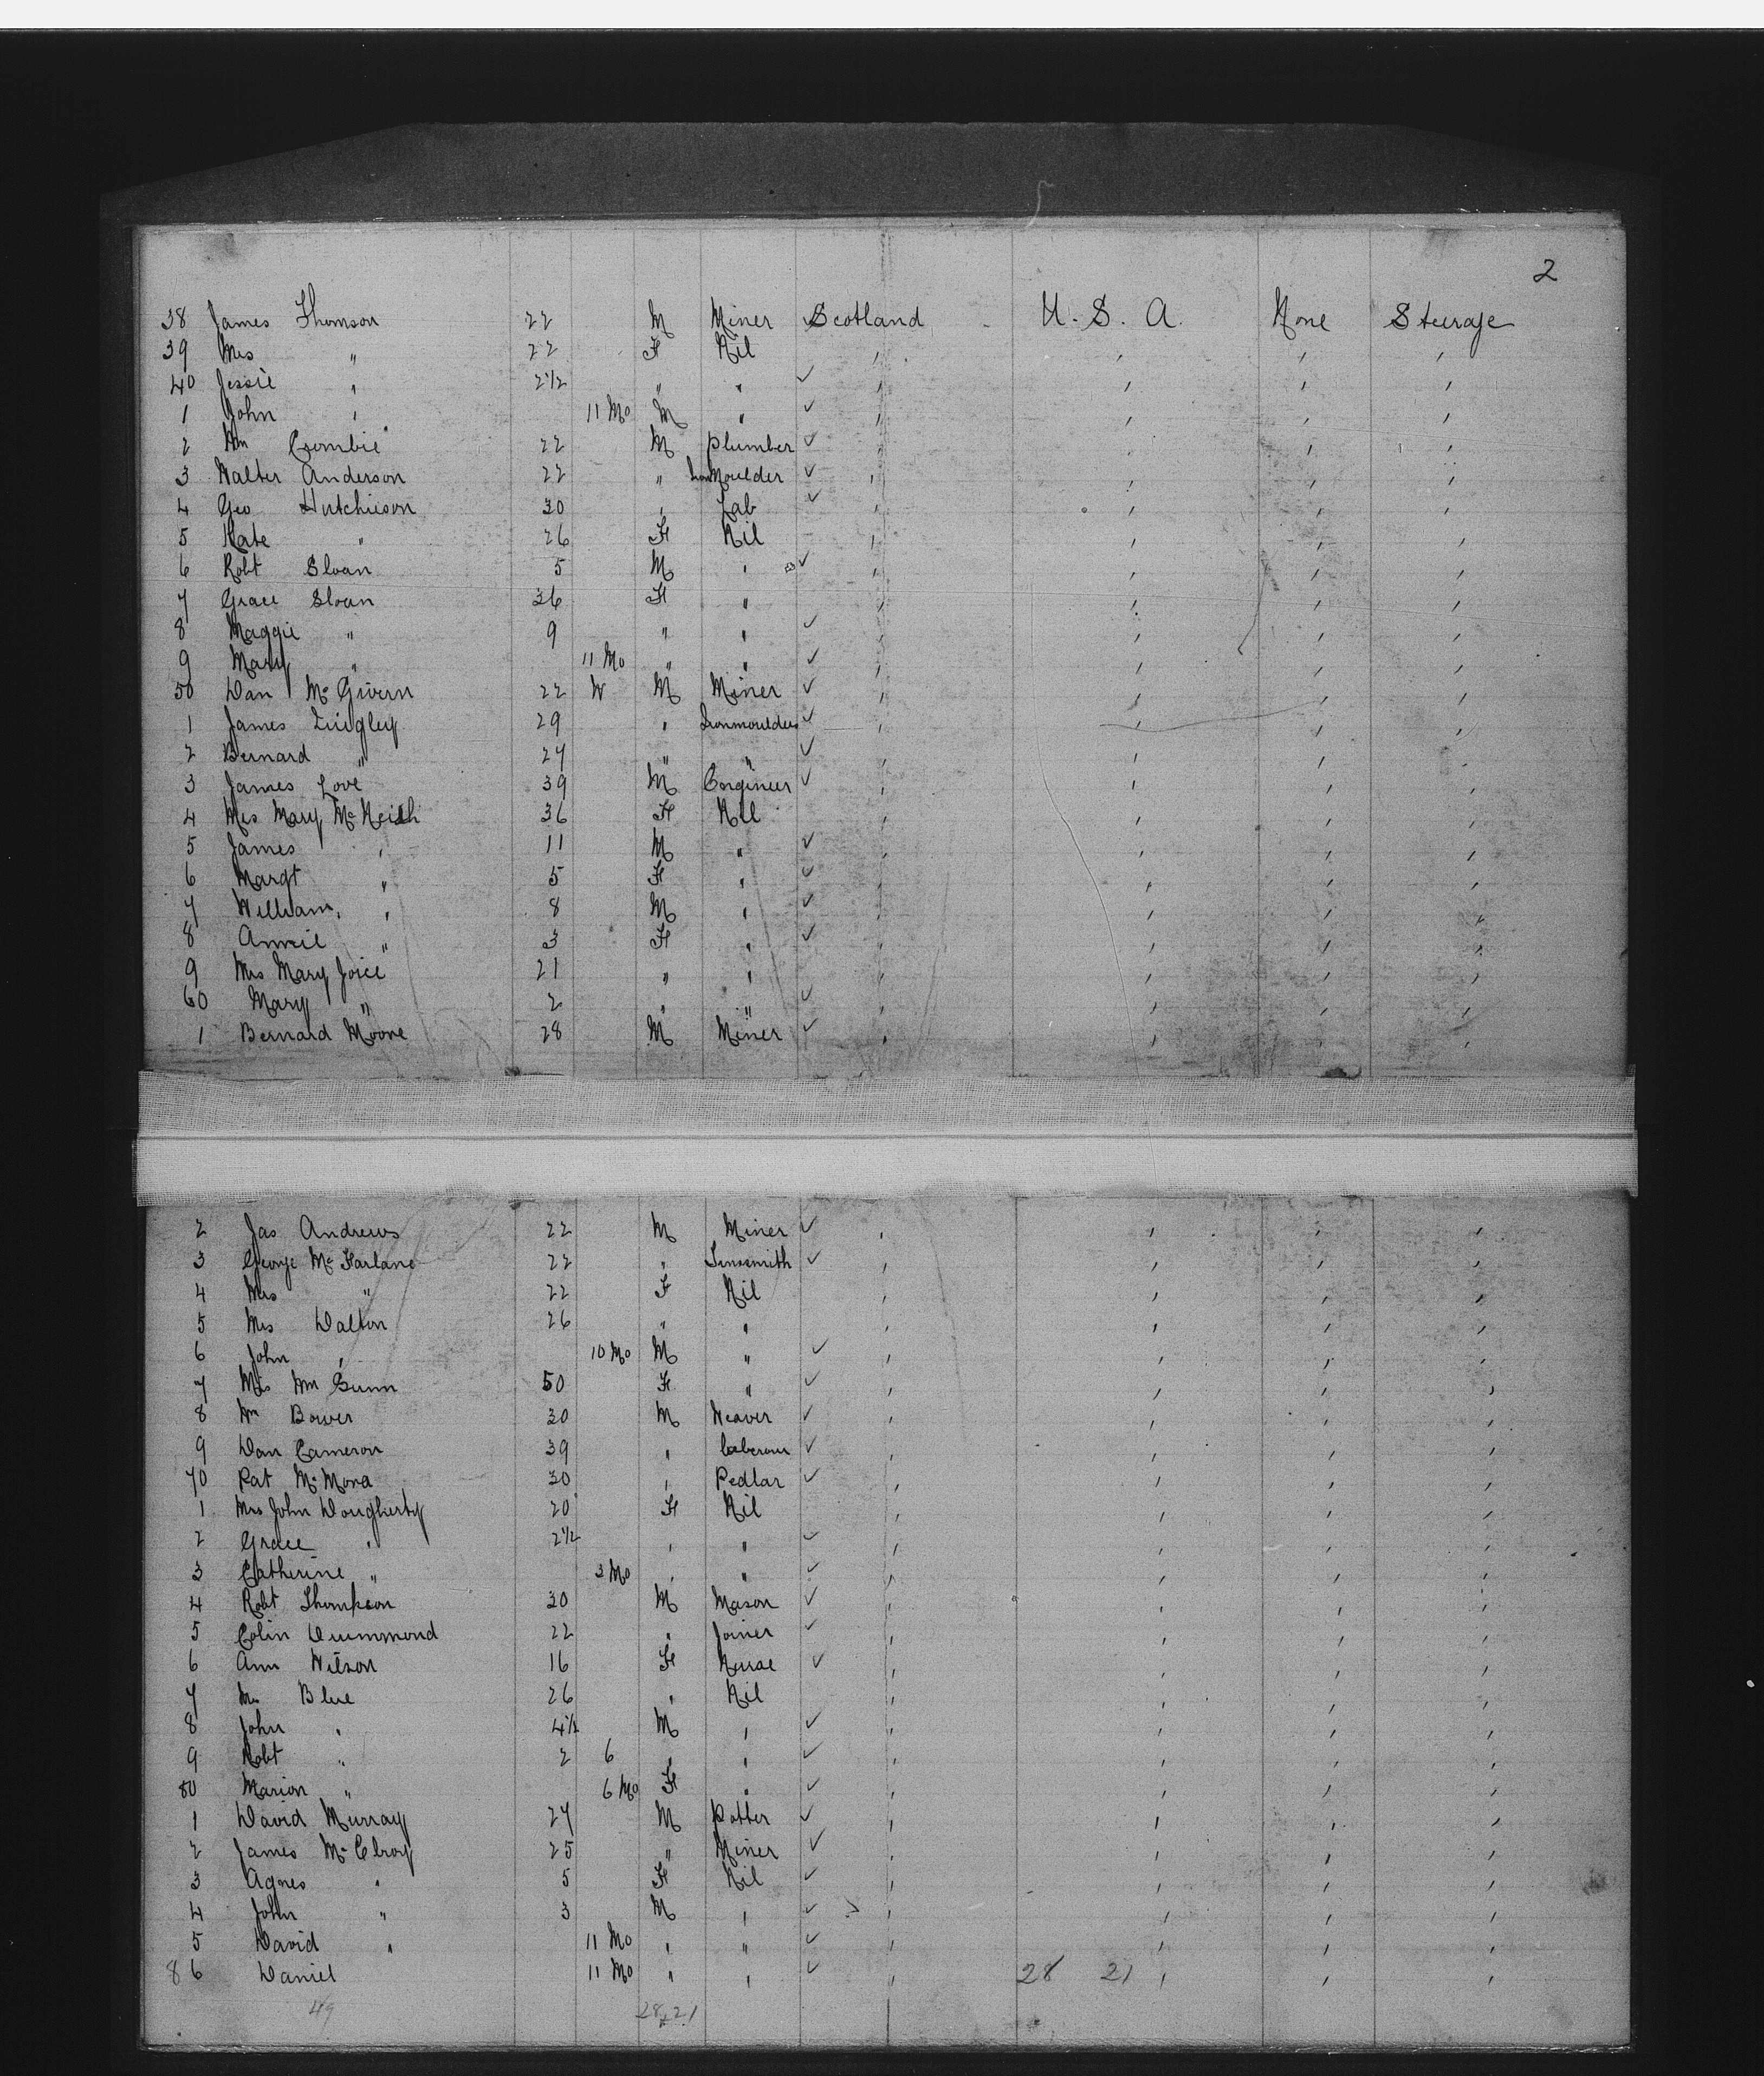 2
38 James Thomson 22 M Miner ✓ Scotland U. S. A. None Steerage
39 Mrs " 22 F Nil " " " "
40 Jessie " 2 1/2 " " ✓ " " " "
1 John " 11 Mo M " ✓ " " " "
2 Wm Crombie 22 M Plumber ✓ " " "
3 Walter Anderson 22 " Iron Moulder ✓ " " " "
4 Geo Hutchieson 30 " Lab ✓ " " " "
5 Kate " 26 F Nil " " " "
6 Robt Sloan 5 M " ✓ " " " "
7 Grace Sloan 36 F " " " " "
8 Maggie " 9 " " ✓ " " " "
9 Mary " 11 Mo " " ✓ " " " "
50 Dan McGivern 22 W M Miner ✓ " " " "
1 James Quigley 29 " Ironmoulder ✓ " " " "
2 Bernard " 24 " " ✓ " " " "
3 James Love 39 M Engineer ✓ " " " "
4 Mrs Mary Mc 36 F Nil " " " "
5 James " 11 M " ✓ " " " "
6 Margt " 5 F " ✓ " " " "
7 William " 8 M " ✓ " " " "
8 Annie " 3 F " ✓ " " " "
9 Mrs Mary Joice 21 " " " " " "
60 Mary " 2 " " ✓ " " " "
1 Bernard Moore 28 M Miner ✓ " " " "
2 Jas Andrews 22 M Miner ✓ " " " "
3 George McFarlane 22 " Tinsmith ✓ " " " "
4 Mrs " 22 F Nil " " " "
5 Mrs Dalton 26 " " " " " "
6 John " 10 Mo M " ✓ " " " "
7 Mrs Wm Gunn 50 F " ✓ " " " "
8 Wm Bower 30 M Weaver ✓ " " " "
9 Dan Cameron 39 " ✓ " " " "
70 Pat McMona 30 " Pedlar ✓ " " " "
1 Mrs John Dougherty 20 F Nil " " " "
2 Grace " 2 1/2 " " ✓ " " " "
3 Catherine " 3 Mo " " ✓ " " " "
4 Robt Thompson 30 M Mason ✓ " " " "
5 Colin Drummond 22 " Joiner ✓ " " " "
6 Ann Wilson 16 F Nurse ✓ " " " "
7 Mrs Blue 26 " Nil " " " "
8 John " 4 1/2 M " ✓ " " " "
9 Robt " 2 6 " " ✓ " " " "
80 Marion " 6 Mo F " ✓ " " " "
1 David Murray 24 M Potter ✓ " " " "
2 James McElroy 25 " Miner ✓ " " " "
3 Agnes " 5 F Nil ✓ " " " "
4 John " 3 M " ✓ " " " "
5 David " 11 Mo " " ✓ " " " "
86 Daniel 11 Mo " " ✓ " 28 21 " " "
49 28+21